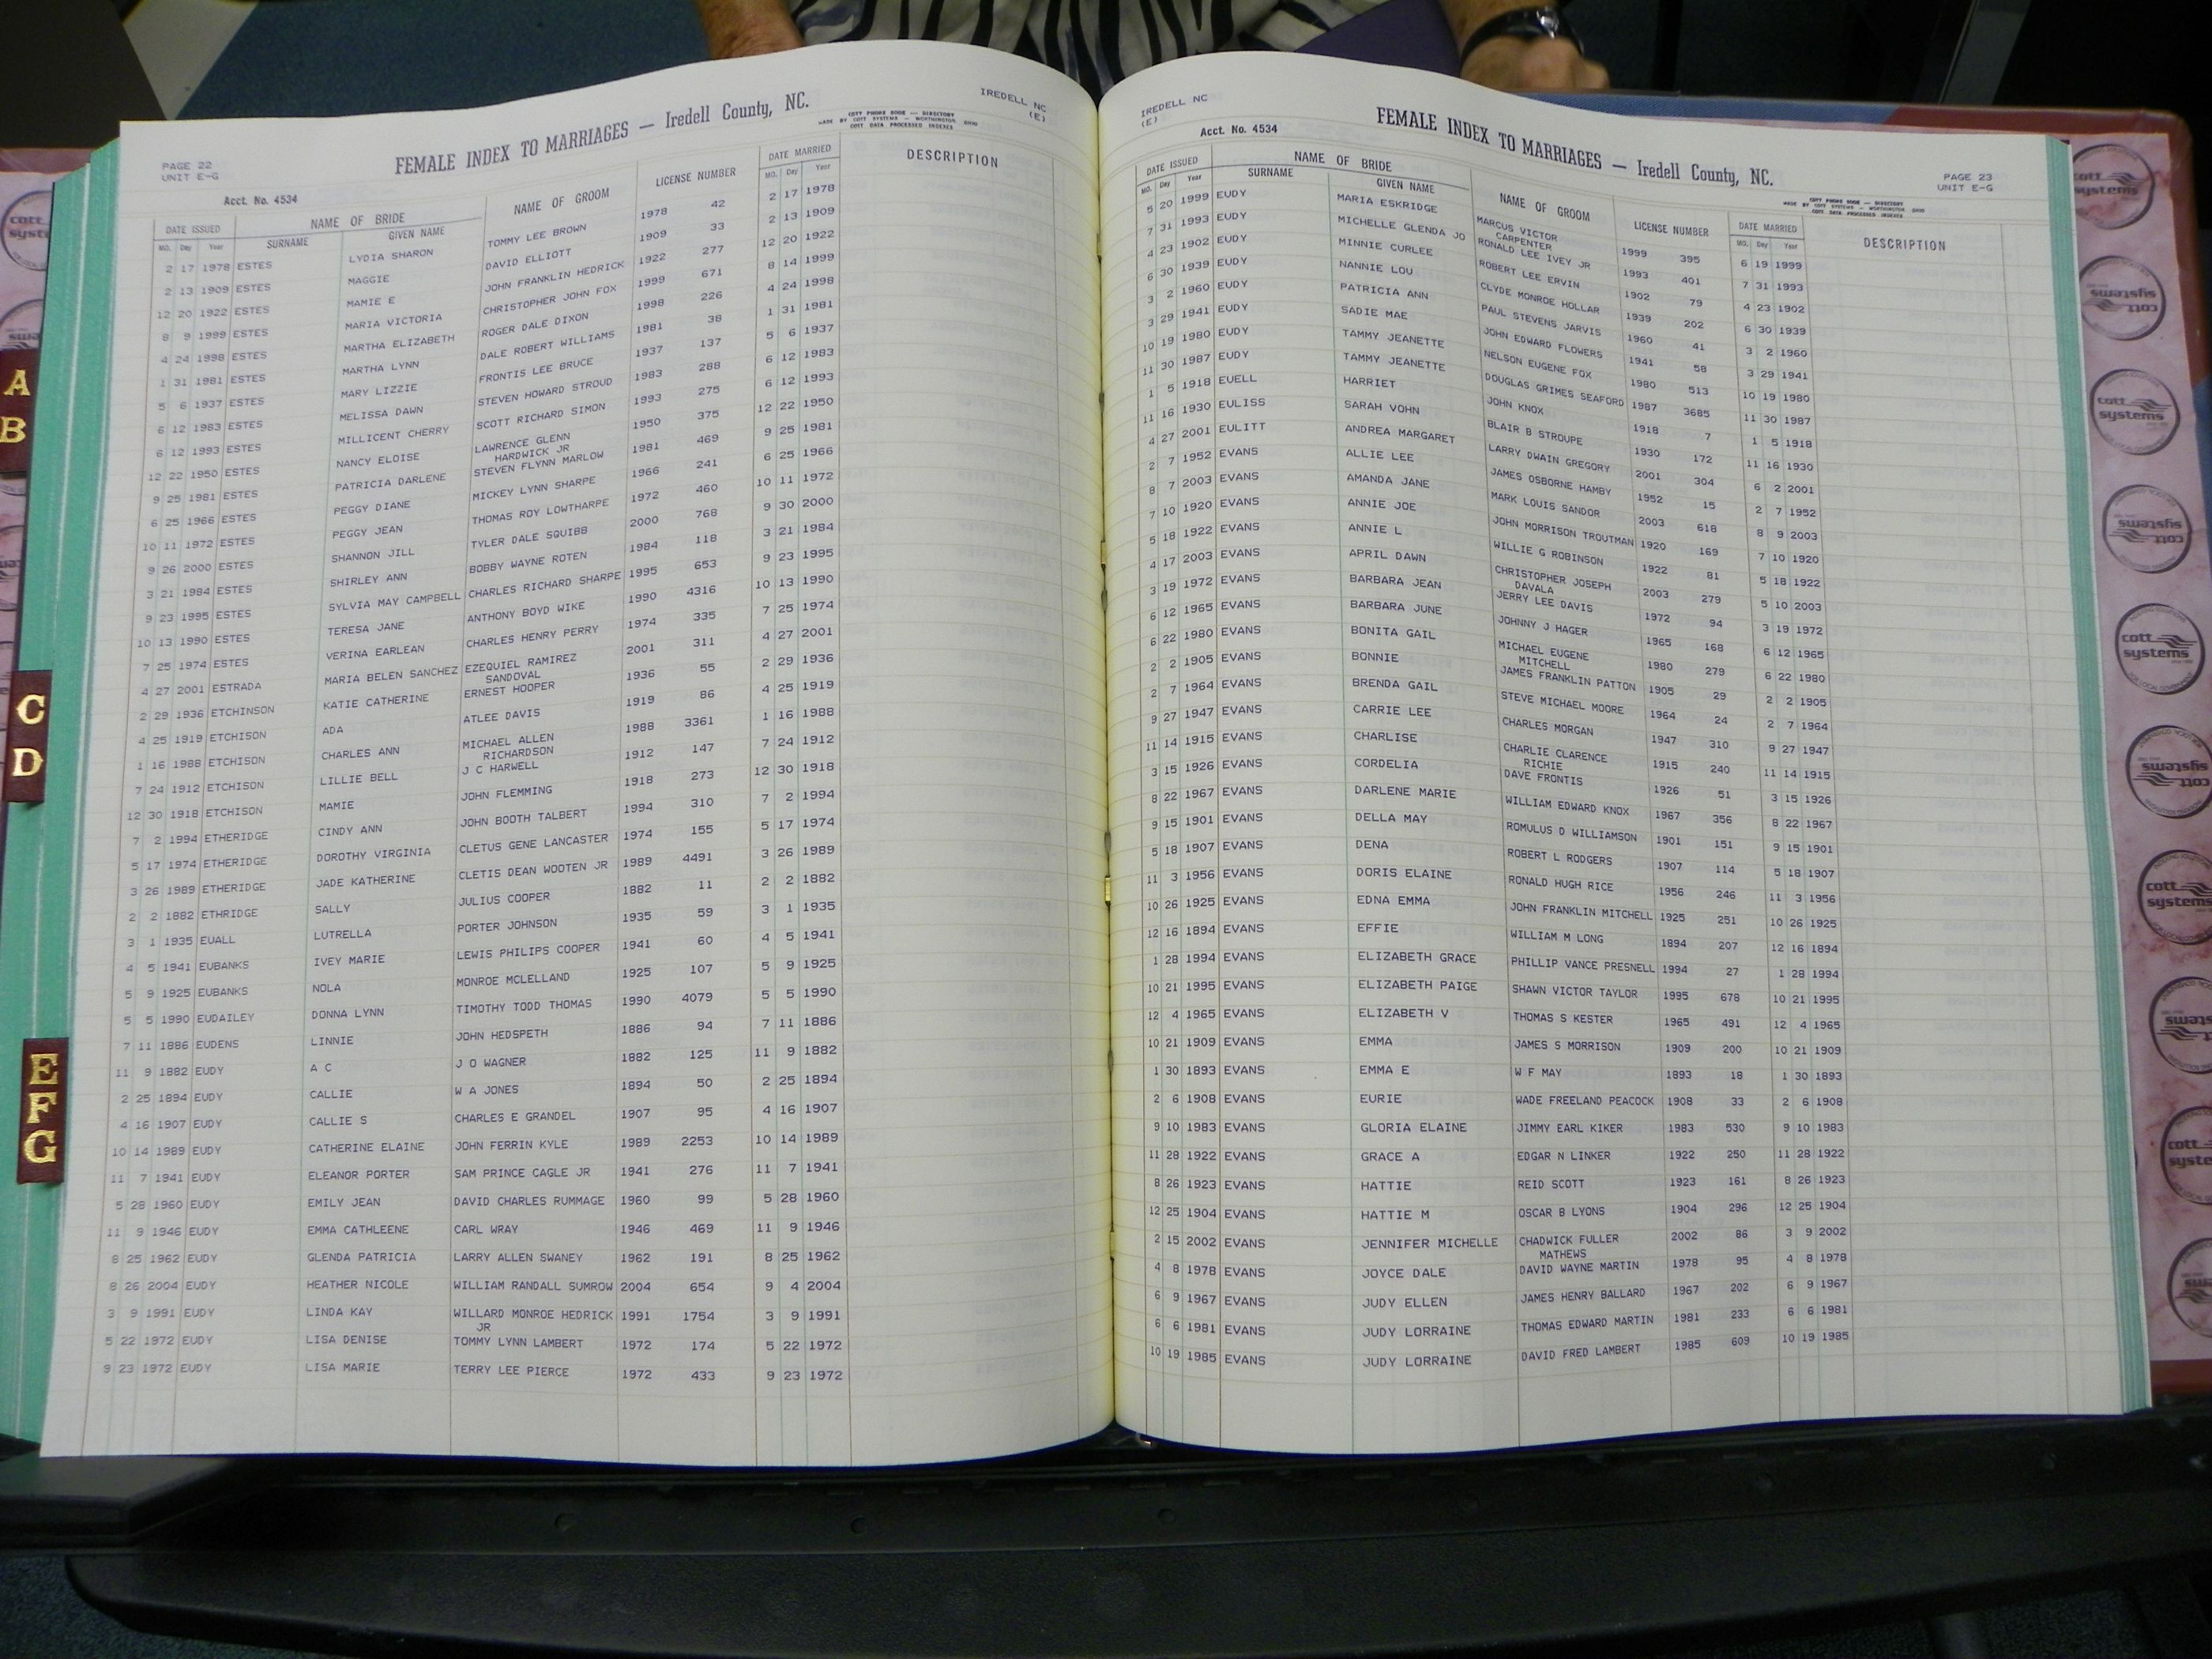 PAGE 22
UNIT E-G
FEMALE INDEX TO MARRIAGES — Iredell County, NC.
COTT PHONE BOOK — DIRECTORY
MADE BY COTT SYSTEMS — WORTHINGTON, OHIO
COTT DATA PROCESSED INDEXES
IREDELL NC
(E)
Acct. No. 4534
DATE ISSUED NAME OF BRIDE NAME OF GROOM LICENSE NUMBER DATE MARRIED DESCRIPTION
MO. Day Year SURNAME GIVEN NAME MO. Day Year
2 17 1978 ESTES LYDIA SHARON TOMMY LEE BROWN 1978 42 2 17 1978
2 13 1909 ESTES MAGGIE DAVID ELLIOTT 1909 33 2 13 1909
12 20 1922 ESTES MAMIE E JOHN FRANKLIN HEDRICK 1922 277 12 20 1922
8 9 1999 ESTES MARIA VICTORIA CHRISTOPHER JOHN FOX 1999 671 8 14 1999
4 24 1998 ESTES MARTHA ELIZABETH ROGER DALE DIXON 1998 226 4 24 1998
1 31 1981 ESTES MARTHA LYNN DALE ROBERT WILLIAMS 1981 38 1 31 1981
5 6 1937 ESTES MARY LIZZIE FRONTIS LEE BRUCE 1937 137 5 6 1937
6 12 1983 ESTES MELISSA DAWN STEVEN HOWARD STROUD 1983 288 6 12 1983
6 12 1993 ESTES MILLICENT CHERRY SCOTT RICHARD SIMON 1993 275 6 12 1993
12 22 1950 ESTES NANCY ELOISE LAWRENCE GLENN 1950 375 12 22 1950
HARDWICK JR
9 25 1981 ESTES PATRICIA DARLENE STEVEN FLYNN MARLOW 1981 469 9 25 1981
6 25 1966 ESTES PEGGY DIANE MICKEY LYNN SHARPE 1966 241 6 25 1966
10 11 1972 ESTES PEGGY JEAN THOMAS ROY LOWTHARPE 1972 460 10 11 1972
9 26 2000 ESTES SHANNON JILL TYLER DALE SQUIBB 2000 768 9 30 2000
3 21 1984 ESTES SHIRLEY ANN BOBBY WAYNE ROTEN 1984 118 3 21 1984
9 23 1995 ESTES SYLVIA MAY CAMPBELL CHARLES RICHARD SHARPE 1995 653 9 23 1995
10 13 1990 ESTES TERESA JANE ANTHONY BOYD WIKE 1990 4316 10 13 1990
7 25 1974 ESTES VERINA EARLEAN CHARLES HENRY PERRY 1974 335 7 25 1974
4 27 2001 ESTRADA MARIA BELEN SANCHEZ EZEQUIEL RAMIREZ 2001 311 4 27 2001
SANDOVAL
2 29 1936 ETCHINSON KATIE CATHERINE ERNEST HOOPER 1936 55 2 29 1936
4 25 1919 ETCHISON ADA ATLEE DAVIS 1919 86 4 25 1919
1 16 1988 ETCHISON CHARLES ANN MICHAEL ALLEN 1988 3361 1 16 1988
RICHARDSON
7 24 1912 ETCHISON LILLIE BELL J C HARWELL 1912 147 7 24 1912
12 30 1918 ETCHISON MAMIE JOHN FLEMMING 1918 273 12 30 1918
7 2 1994 ETHERIDGE CINDY ANN JOHN BOOTH TALBERT 1994 310 7 2 1994
5 17 1974 ETHERIDGE DOROTHY VIRGINIA CLETUS GENE LANCASTER 1974 155 5 17 1974
3 26 1989 ETHERIDGE JADE KATHERINE CLETIS DEAN WOOTEN JR 1989 4491 3 26 1989
2 2 1882 ETHRIDGE SALLY JULIUS COOPER 1882 11 2 2 1882
3 1 1935 EUALL LUTRELLA PORTER JOHNSON 1935 59 3 1 1935
4 5 1941 EUBANKS IVEY MARIE LEWIS PHILIPS COOPER 1941 60 4 5 1941
5 9 1925 EUBANKS NOLA MONROE MCLELLAND 1925 107 5 9 1925
5 5 1990 EUDAILEY DONNA LYNN TIMOTHY TODD THOMAS 1990 4079 5 5 1990
7 11 1886 EUDENS LINNIE JOHN HEDSPETH 1886 94 7 11 1886
11 9 1882 EUDY A C J O WAGNER 1882 125 11 9 1882
2 25 1894 EUDY CALLIE W A JONES 1894 50 2 25 1894
4 16 1907 EUDY CALLIE S CHARLES E GRANDEL 1907 95 4 16 1907
10 14 1989 EUDY CATHERINE ELAINE JOHN FERRIN KYLE 1989 2253 10 14 1989
11 7 1941 EUDY ELEANOR PORTER SAM PRINCE CAGLE JR 1941 276 11 7 1941
5 28 1960 EUDY EMILY JEAN DAVID CHARLES RUMMAGE 1960 99 5 28 1960
11 9 1946 EUDY EMMA CATHLEENE CARL WRAY 1946 469 11 9 1946
8 25 1962 EUDY GLENDA PATRICIA LARRY ALLEN SWANEY 1962 191 8 25 1962
8 26 2004 EUDY HEATHER NICOLE WILLIAM RANDALL SUMROW 2004 654 9 4 2004
3 9 1991 EUDY LINDA KAY WILLARD MONROE HEDRICK 1991 1754 3 9 1991
JR
5 22 1972 EUDY LISA DENISE TOMMY LYNN LAMBERT 1972 174 5 22 1972
9 23 1972 EUDY LISA MARIE TERRY LEE PIERCE 1972 433 9 23 1972
IREDELL NC
(E)
Acct. No. 4534
FEMALE INDEX TO MARRIAGES — Iredell County, NC.
COTT PHONE BOOK — DIRECTORY
MADE BY COTT SYSTEMS — WORTHINGTON, OHIO
COTT DATA PROCESSED INDEXES
PAGE 23
UNIT E-G
DATE ISSUED NAME OF BRIDE NAME OF GROOM LICENSE NUMBER DATE MARRIED DESCRIPTION
MO. Day Year SURNAME GIVEN NAME MO. Day Year
5 20 1999 EUDY MARIA ESKRIDGE MARCUS VICTOR 1999 395 6 19 1999
CARPENTER
7 31 1993 EUDY MICHELLE GLENDA JO RONALD LEE IVEY JR 1993 401 7 31 1993
4 23 1902 EUDY MINNIE CURLEE ROBERT LEE ERVIN 1902 79 4 23 1902
6 30 1939 EUDY NANNIE LOU CLYDE MONROE HOLLAR 1939 202 6 30 1939
3 2 1960 EUDY PATRICIA ANN PAUL STEVENS JARVIS 1960 41 3 2 1960
3 29 1941 EUDY SADIE MAE JOHN EDWARD FLOWERS 1941 58 3 29 1941
10 19 1980 EUDY TAMMY JEANETTE NELSON EUGENE FOX 1980 513 10 19 1980
11 30 1987 EUDY TAMMY JEANETTE DOUGLAS GRIMES SEAFORD 1987 3685 11 30 1987
1 5 1918 EUELL HARRIET JOHN KNOX 1918 7 1 5 1918
11 16 1930 EULISS SARAH VOHN BLAIR B STROUPE 1930 172 11 16 1930
4 27 2001 EULITT ANDREA MARGARET LARRY DWAIN GREGORY 2001 304 6 2 2001
2 7 1952 EVANS ALLIE LEE JAMES OSBORNE HAMBY 1952 15 2 7 1952
8 7 2003 EVANS AMANDA JANE MARK LOUIS SANDOR 2003 618 8 9 2003
7 10 1920 EVANS ANNIE JOE JOHN MORRISON TROUTMAN 1920 169 7 10 1920
5 18 1922 EVANS ANNIE L WILLIE G ROBINSON 1922 81 5 18 1922
4 17 2003 EVANS APRIL DAWN CHRISTOPHER JOSEPH 2003 279 5 10 2003
DAVALA
3 19 1972 EVANS BARBARA JEAN JERRY LEE DAVIS 1972 94 3 19 1972
6 12 1965 EVANS BARBARA JUNE JOHNNY J HAGER 1965 168 6 12 1965
6 22 1980 EVANS BONITA GAIL MICHAEL EUGENE 1980 279 6 22 1980
MITCHELL
2 2 1905 EVANS BONNIE JAMES FRANKLIN PATTON 1905 29 2 2 1905
2 7 1964 EVANS BRENDA GAIL STEVE MICHAEL MOORE 1964 24 2 7 1964
9 27 1947 EVANS CARRIE LEE CHARLES MORGAN 1947 310 9 27 1947
11 14 1915 EVANS CHARLISE CHARLIE CLARENCE 1915 240 11 14 1915
RICHIE
3 15 1926 EVANS CORDELIA DAVE FRONTIS 1926 51 3 15 1926
8 22 1967 EVANS DARLENE MARIE WILLIAM EDWARD KNOX 1967 356 8 22 1967
9 15 1901 EVANS DELLA MAY ROMULUS D WILLIAMSON 1901 151 9 15 1901
5 18 1907 EVANS DENA ROBERT L RODGERS 1907 114 5 18 1907
11 3 1956 EVANS DORIS ELAINE RONALD HUGH RICE 1956 246 11 3 1956
10 26 1925 EVANS EDNA EMMA JOHN FRANKLIN MITCHELL 1925 251 10 26 1925
12 16 1894 EVANS EFFIE WILLIAM M LONG 1894 207 12 16 1894
1 28 1994 EVANS ELIZABETH GRACE PHILLIP VANCE PRESNELL 1994 27 1 28 1994
10 21 1995 EVANS ELIZABETH PAIGE SHAWN VICTOR TAYLOR 1995 678 10 21 1995
12 4 1965 EVANS ELIZABETH V THOMAS S KESTER 1965 491 12 4 1965
10 21 1909 EVANS EMMA JAMES S MORRISON 1909 200 10 21 1909
1 30 1893 EVANS EMMA E W F MAY 1893 18 1 30 1893
2 6 1908 EVANS EURIE WADE FREELAND PEACOCK 1908 33 2 6 1908
9 10 1983 EVANS GLORIA ELAINE JIMMY EARL KIKER 1983 530 9 10 1983
11 28 1922 EVANS GRACE A EDGAR N LINKER 1922 250 11 28 1922
8 26 1923 EVANS HATTIE REID SCOTT 1923 161 8 26 1923
12 25 1904 EVANS HATTIE M OSCAR B LYONS 1904 296 12 25 1904
2 15 2002 EVANS JENNIFER MICHELLE CHADWICK FULLER 2002 86 3 9 2002
MATHEWS
4 8 1978 EVANS JOYCE DALE DAVID WAYNE MARTIN 1978 95 4 8 1978
6 9 1967 EVANS JUDY ELLEN JAMES HENRY BALLARD 1967 202 6 9 1967
6 6 1981 EVANS JUDY LORRAINE THOMAS EDWARD MARTIN 1981 233 6 6 1981
10 19 1985 EVANS JUDY LORRAINE DAVID FRED LAMBERT 1985 609 10 19 1985
A
B
C
D
E
F
G
cott systems
cott systems
cott systems
cott systems